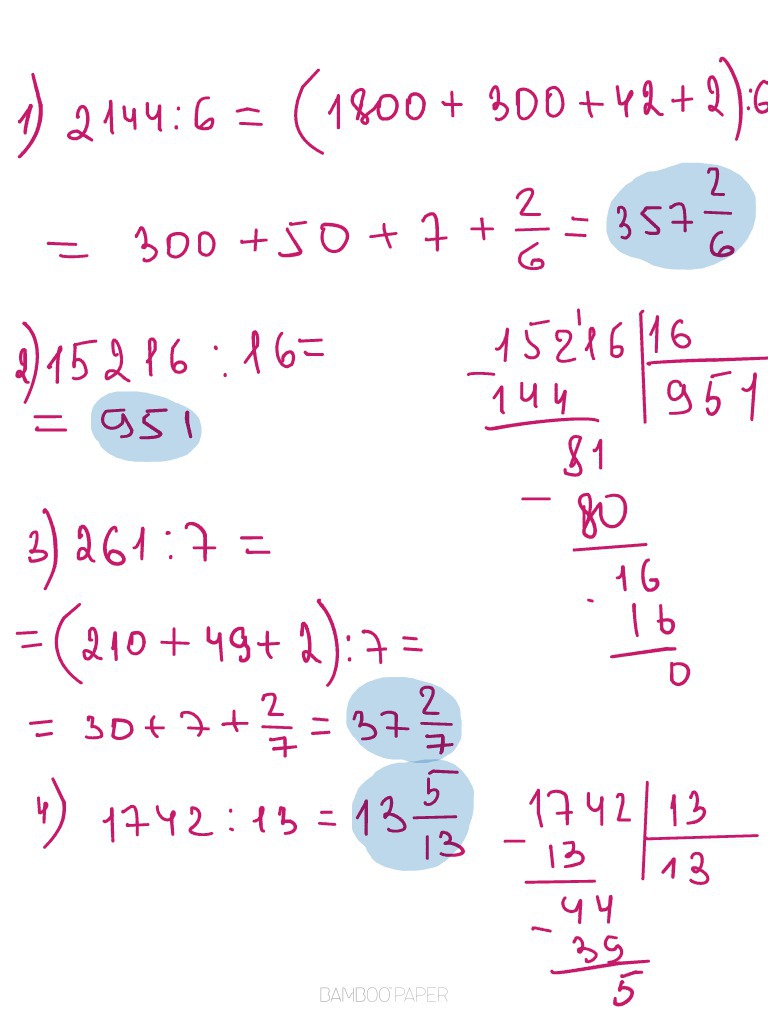 1) 2144:6 = (1800 + 300 + 42 + 2):6
= 300 + 50 + 7 + 2/6 = 357 2/6
2) 15216 : 16 =
= 951
15216 | 16
- 144 | 951
81
- 80
16
- 16
0
3) 261 : 7 =
= (210 + 49 + 2) : 7 =
= 30 + 7 + 2/7 = 37 2/7
4) 1742 : 13 = 13 5/13
1742 | 13
- 13 | 13
44
- 39
5
BAMBOO PAPER